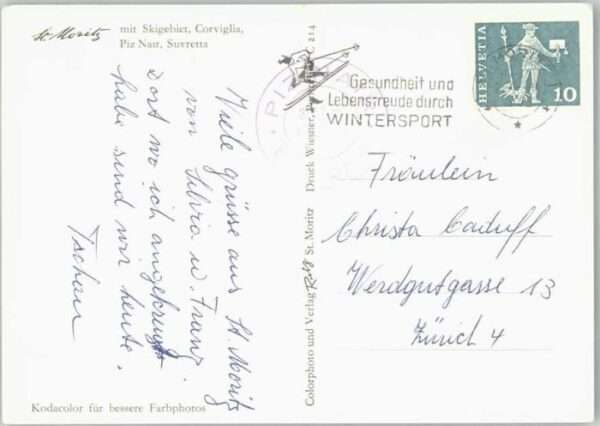 St. Moritz
mit Skigebiet, Corviglia,
Piz Nair, Suvretta
Viele grüsse aus St. Moritz
von Silvia u. Franz
dort wo ich angekreuzt
habe sind wir heute.
Tschau
Kodacolor für bessere Farbphotos
Colorphoto und Verlag
St. Moritz
Druck Wiesner,
C 214
PIZ NAIR
Gesundheit und
Lebensfreude durch
WINTERSPORT
HELVETIA
10
Fräulein
Christa Caduff
Werdgutgasse 13
Zürich 4